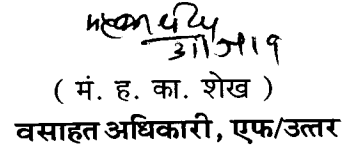 ( मं. ह. का. शेख )
वसाहत अधिकारी, एफ/उत्तर